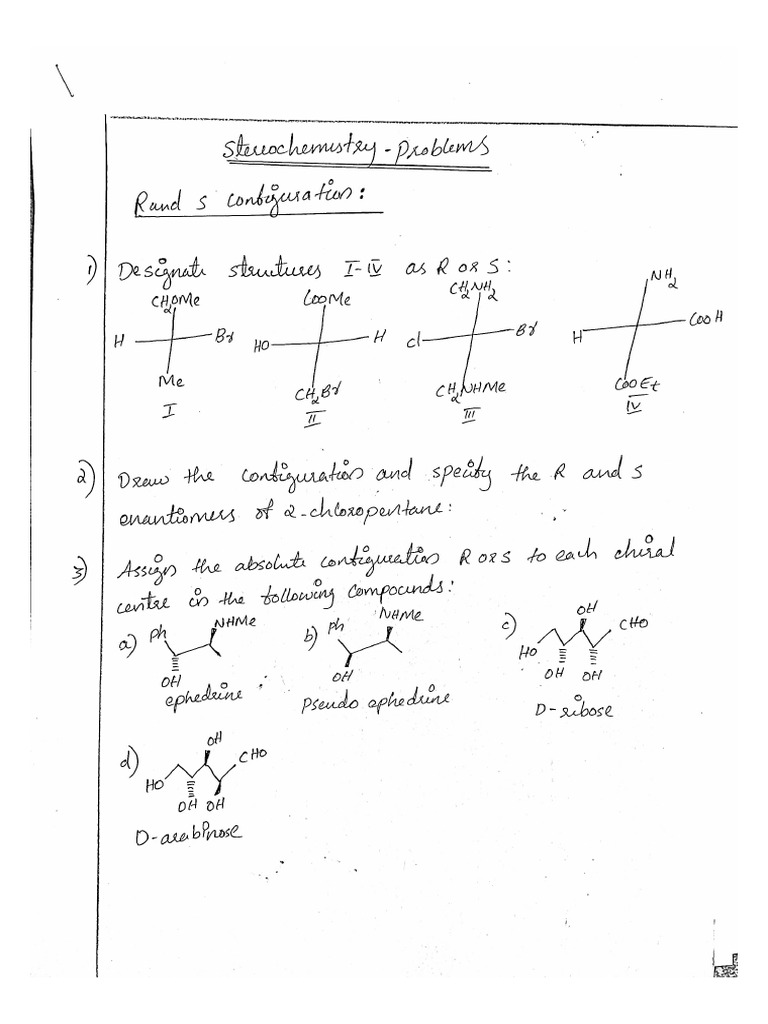 Stereochemistry - Problems
R and S configuration:
1) Designate structures I-IV as R or S:
CH2OMe COOMe CH2NH2 NH2
H Br HO H Cl Br H COOH
Me CH2Br CH2NHMe COOEt
I II III IV
2) Draw the configuration and specify the R and S
enantiomers of 2-chloropentane:
3) Assign the absolute configuration R or S to each chiral
centre in the following compounds:
a) Ph NHMe b) Ph NHMe c) OH CHO
OH OH HO OH OH
ephedrine ; Pseudo ephedrine D-ribose
d) OH CHO
HO OH OH
D-arabinose